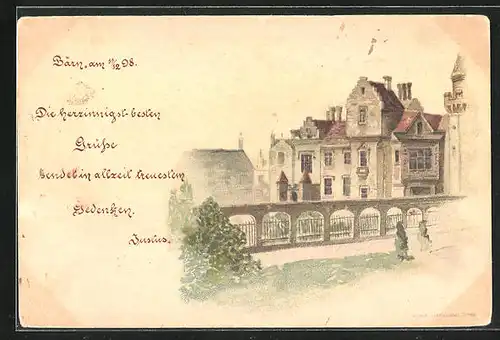 Bärn, am 11/12 98.
Die herzinnigst-besten
Grüße
sendet in allzeit treuestem
Gedenken,
Justus.